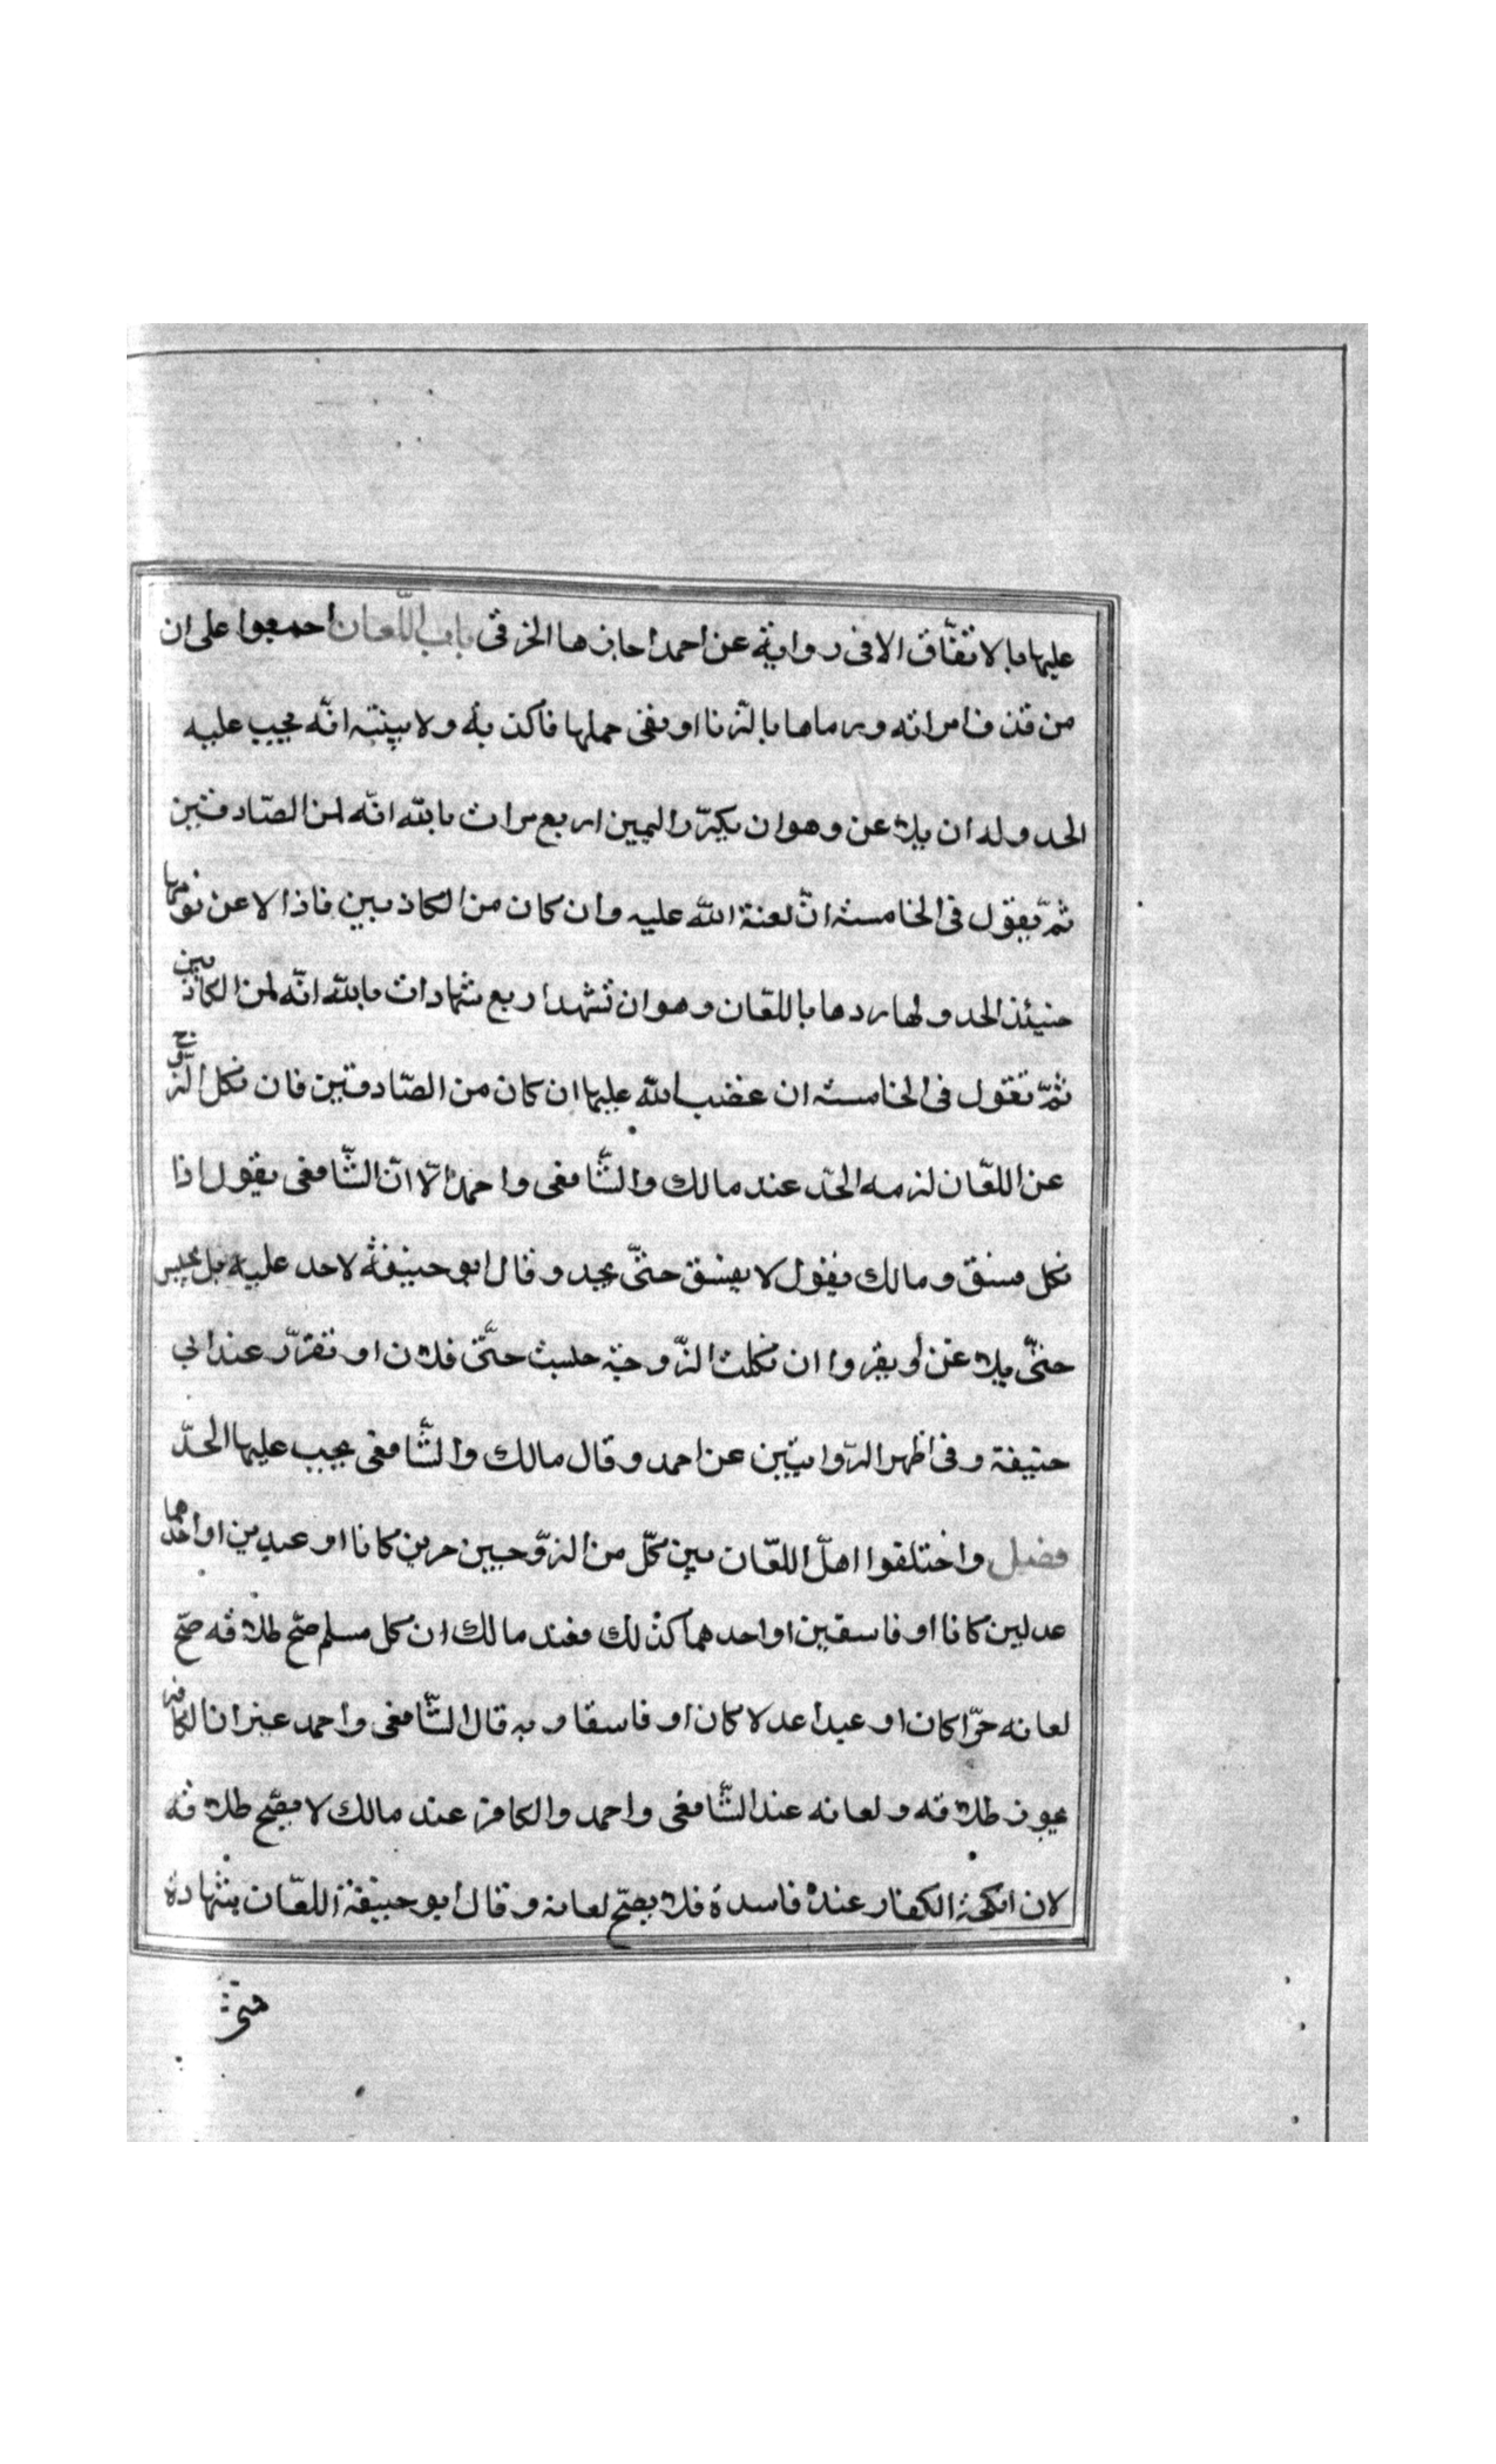 عليها بالاتفّاق الا فى رواية عن احمد اجازها الخرقى باب اللّعان اجمعوا على ان
من قذف امراته ورماها بالزّنا او نفى حملها فأكذبه ولا بينة انّه يجب عليه
الحد وله ان يلاعن وهو ان يكرّر اليمين اربع مرات بالله انّه لمن الصّادقين
ثمّ يقول فى الخامسة انّ لعنة الله عليه وان كان من الكاذبين فاذا لاعن لزمها
حنيئذ الحد ولها ردها باللعّان وهو ان تشهد اربع شهادات بالله انّه لمن الكاذبين
ثمّ تقول فى الخامسة ان غضب الله عليها ان كان من الصّادقين فان نكل الزّوج
عن اللعّان لزمه الحّد عند مالك والشّافعى واحمد الّا انّ الشّافعى يقول اذا
نكل فسق ومالك يقول لا يفسق حتىّ يحد وقال ابو حنيفة لا حد عليه بل يحبس
حتىّ يلاعن أو يقر وان نكلت الزّوجة حبست حتّى تلاعن او تقرّ عند ابي
حنيفة وفى اظهر الرّوايتين عن احمد وقال مالك والشّافعى يجب عليها الحدّ
فصل واختلفوا اهلّ اللعّان بين كلّ من الزّوجين حرين كانا او عبدين او احدهما
عدلين كانا او فاسقين او احدهما كذلك فعند مالك ان كل مسلم صحّ طلاقه صحّ
لعانه حرّا كان او عبدا عدلا كان او فاسقا وبه قال الشّافعى واحمد غير ان الكافر
يجوز طلاقه ولعانه عند الشّافعى واحمد والكافر عند مالك لا يصّح طلاقه
لان انكحة الكفار عنده فاسدة فلا يصحّ لعانه وقال ابو حنيفة اللعّان شهادة